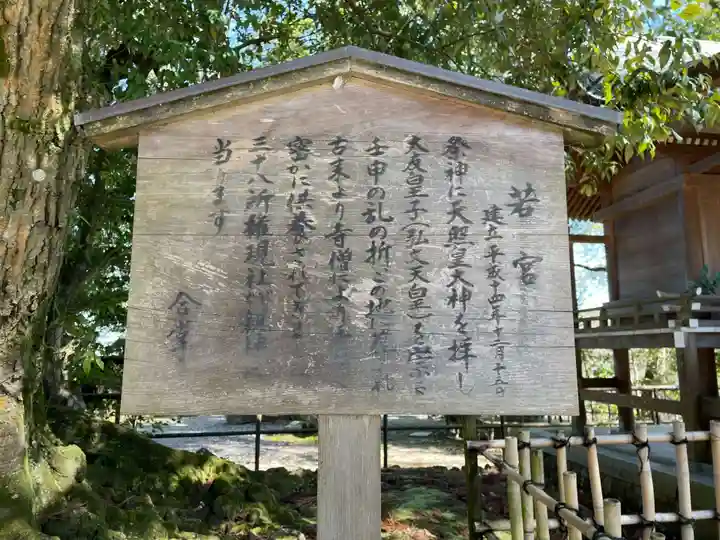 若宮
建立平成十四年十二月十五日
祭神に天照皇大神を拝し
大友皇子(弘文天皇)を
壬申の乱の折、この地に
古来より寺僧により
密かに供養されてきま
三十八所権現社が
当ります
合掌